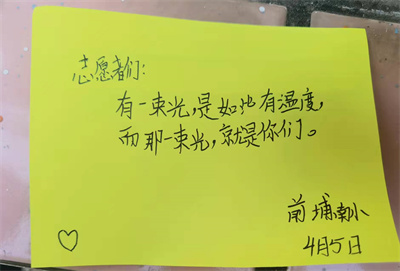 志愿者们:
有一束光,是如此有温度,
而那一束光,就是你们。
前埔南小
4月5日